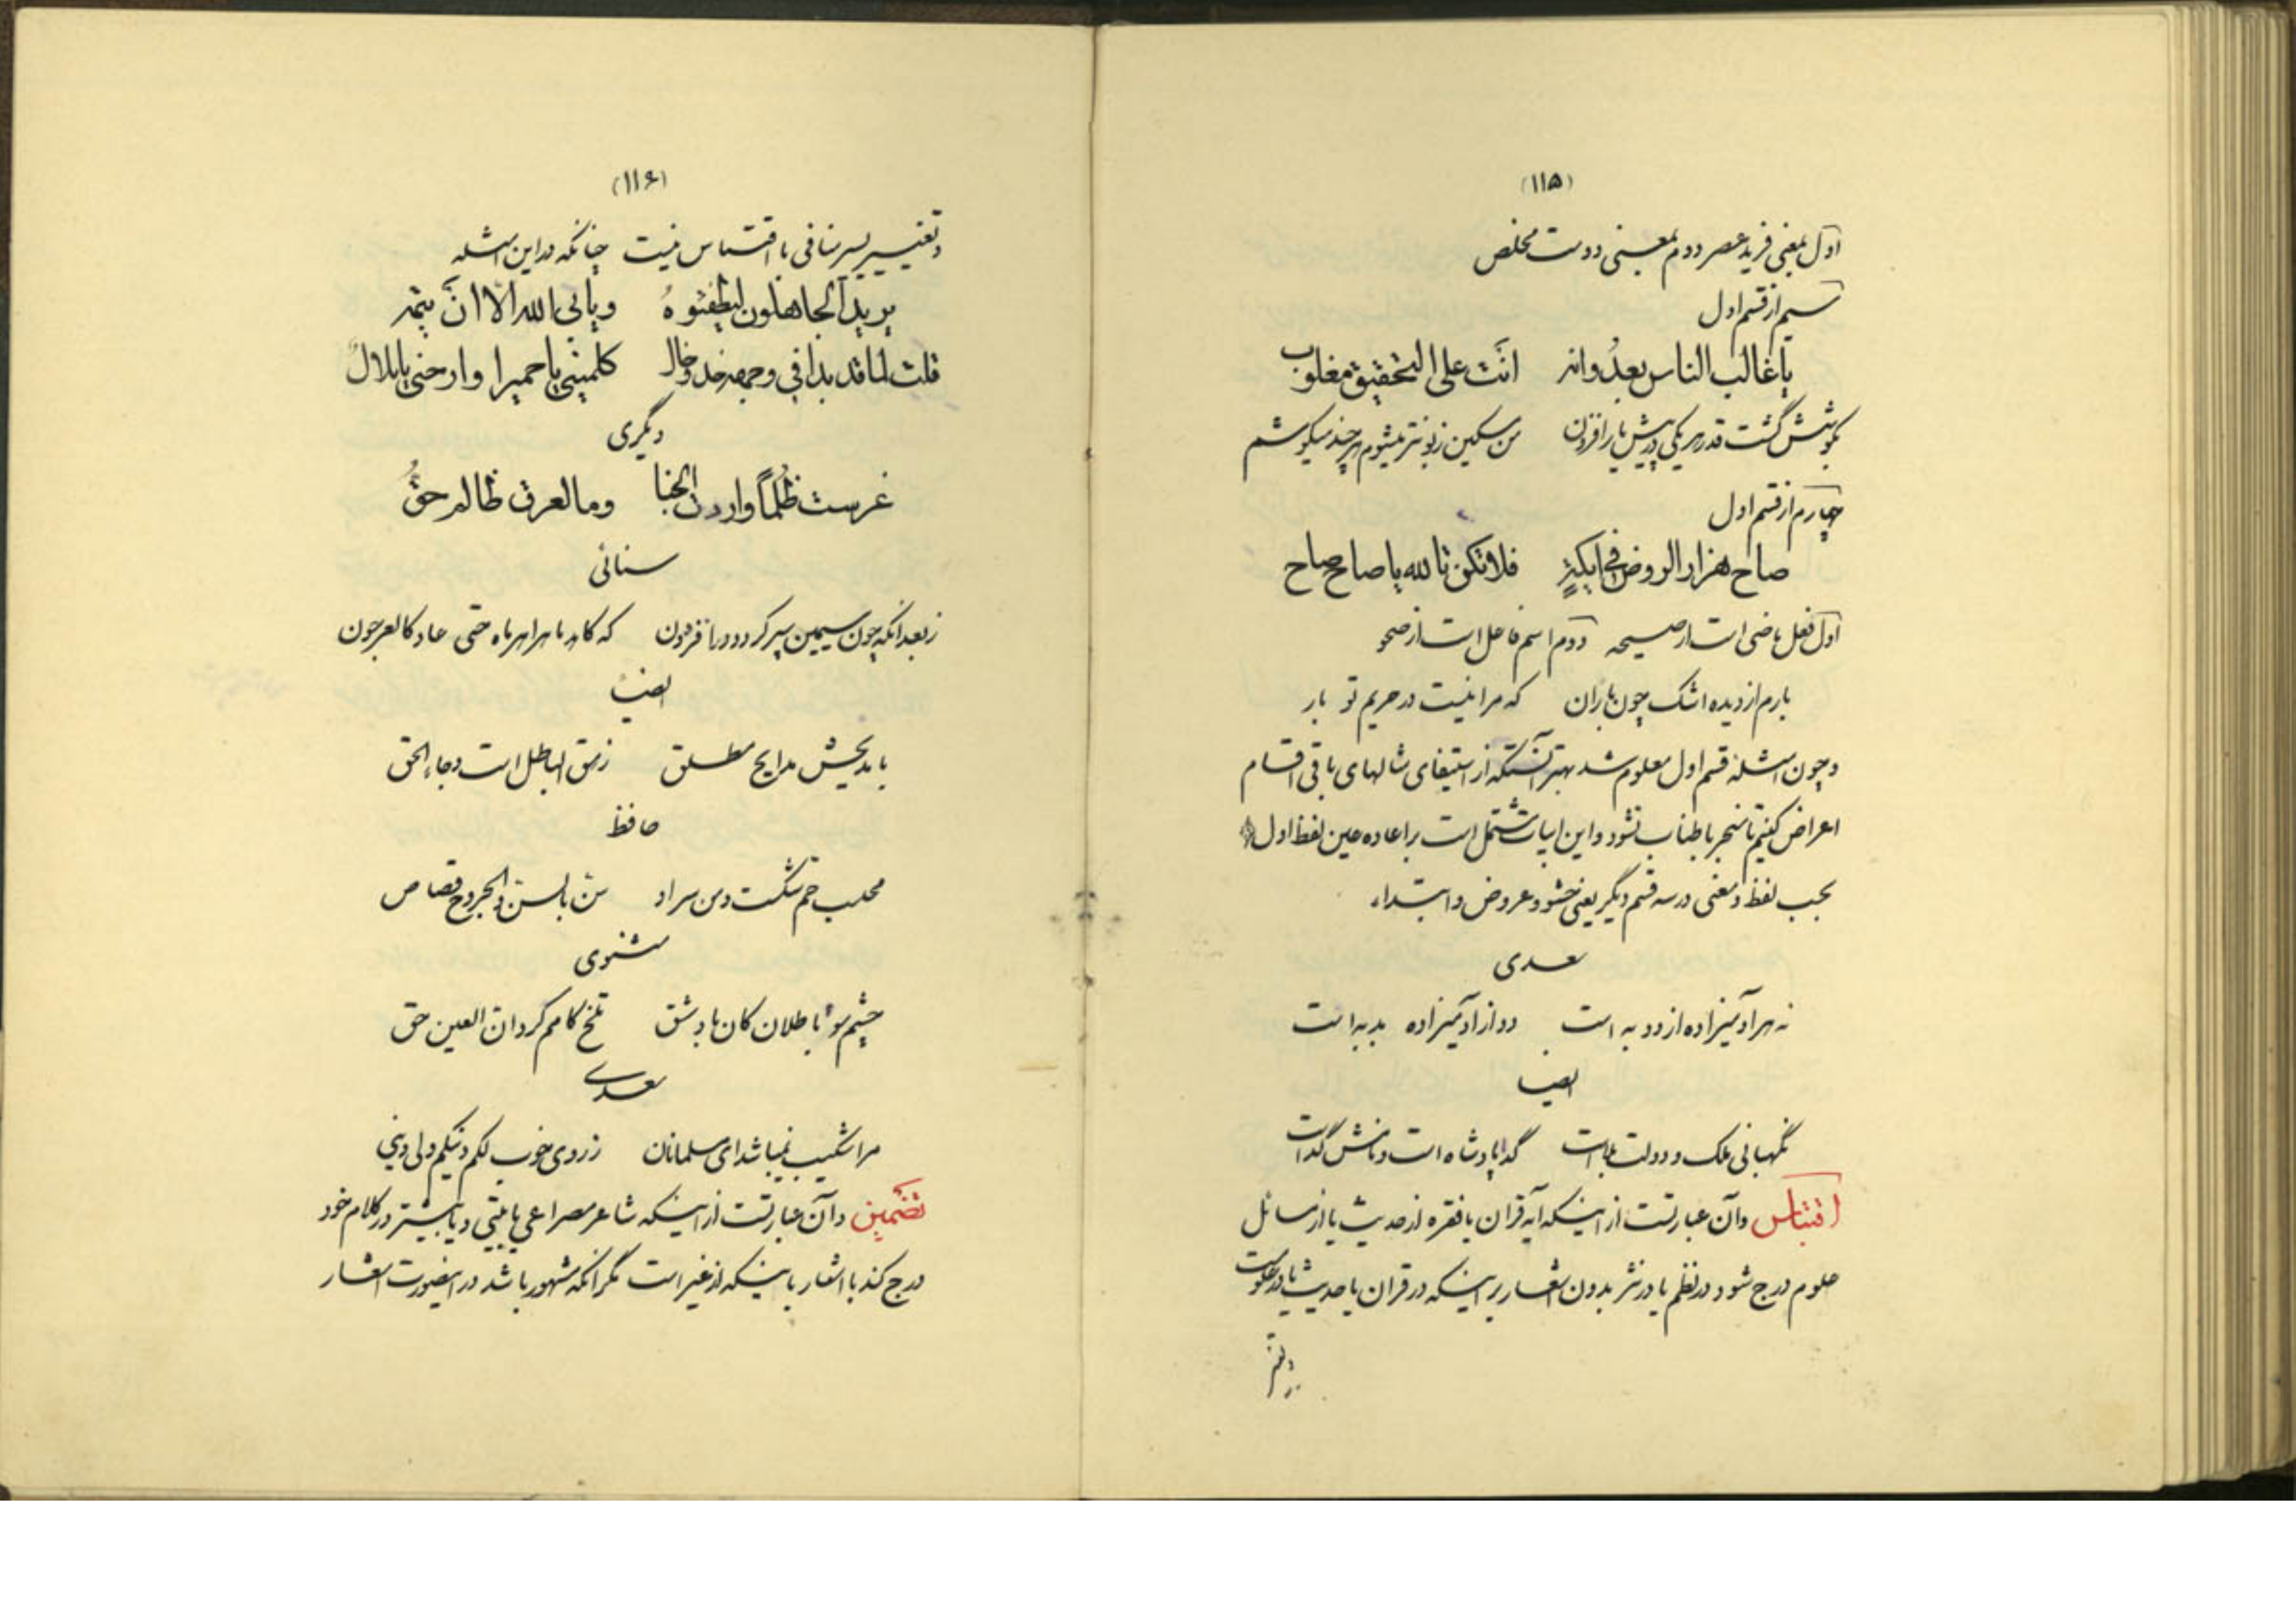 (۱۱۵)
اول بمعنی فرید عصر دوم بمعنی دوست مخلص
سیم از قسم اول
یا غالب الناس بعدوانه انت علی التحقیق مغلوب
بکوشش گشت قدر هر یکی در پیش یار افزون من مسکین زبونتر میشوم هر چند میکوشم
چهارم از قسم اول
صاح هزار الروض فی ایکة فلا تکن تالله یا صاح صاح
اول فعل ماضی است از صیحه دوم اسم فاعل است از صحو
بارم از دیده اشک چون باران که مرا نیست در حریم تو بار
و چون امثله قسم اول معلوم شد بهتر آنستکه از استیفای مثالهای باقی اقسام
اعراض کنیم تا منجر باطناب نشود و این ابیات مشتمل است بر اعاده عین لفظ اول
بحسب لفظ و معنی در سه قسم دیگر یعنی حشو و عروض و ابتداء
سعدی
نه هر آدمیزاده از دد به است دد از آدمیزاده بد به است
ایضا
نگهبانی ملک و دولت بلاست گدا پادشاه است و نامش گداست
اقتباس و آن عبارتست از اینکه آیه قران یا فقره از حدیث یا از مسائل
علوم درج شود در نظم یا در نثر بدون اشعار بر اینکه در قران یا حدیث یا در علوست
و تغییر
(۱۱۶)
و تغییر یسیر منافی با اقتباس نیست چنانکه در این امثله
یرید الجاهلون لیطفئوه ویابی الله الا ان یتمه
قلت لما قد بدا فی وجهه خد وخال کلمینی یا حمیرا وارحنی یا بلال
دیگری
غرست ظلما واردت الجنا وما لعرق ظالم حق
سنائی
ز بعد آنکه چون سیمین سپر گردد درافزون که کاهد ماهرا هر ماه حتی عاد کالعرجون
ایضا
با بدیحش مدایح مطلق زهق الباطل است و جاء الحق
حافظ
محتسب خم شکست و من سر او سن بالسن والجروح قصاص
مثنوی
چشم سوء باطلان کان بادشق تلخ کامم کرد ان العین حق
سعدی
مرا شکیب نمیباشد ای مسلمانان ز روی خوب لکم دینکم ولی دینی
تضمین و آن عبارتست از اینکه شاعر مصراعی یا بیتی و یا بیشتر در کلام خود
درج کند با اشعار باینکه از غیر است مگر آنکه مشهور باشد در اینصورت اشعار